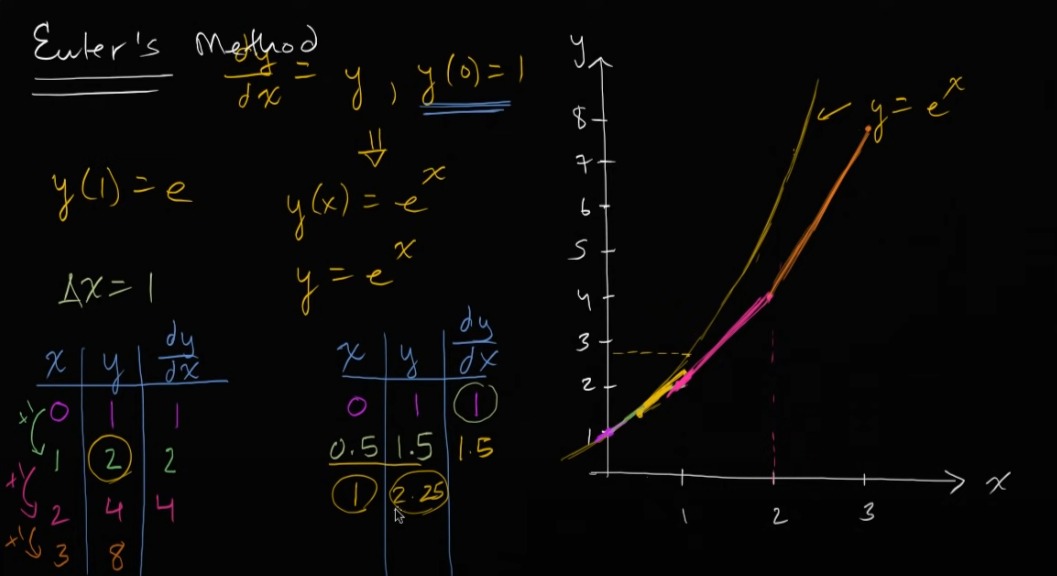 Euler's Method
dy/dx = y, y(0) = 1
⇓
y(1) = e
y(x) = e^x
y = e^x
Δx = 1
x y dy/dx
0 1 1
+1
1 2 2
+1
2 4 4
+1
3 8
x y dy/dx
0 1 1
0.5 1.5 1.5
1 2.25
y
y = e^x
8
7
6
5
4
3
2
1
1 2 3
x